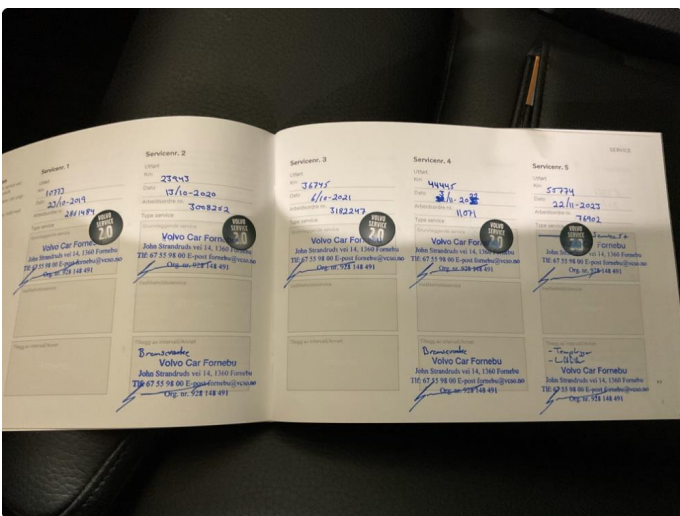 SERVICE
Servicenr. 1
Utført
Km 10773
Dato 23/10-2019
Arbeidsordre nr. 2801484
Type service
VOLVO SERVICE 2.0
Volvo Car Forne
John Strandruds vei 14, 1360 Fornebu
Tlf: 67 55 98 00 E-post fornebu@vcso.no
Org. nr. 928 148 491
Servicenr. 2
Utført
Km 23943
Dato 13/10-2020
Arbeidsordre nr. 3008252
Type service
VOLVO SERVICE 2.0
Volvo Car Forn
John Strandruds vei 14, 1360
Tlf: 67 55 98 00 E-post fornebu@vcso.no
Org. nr. 928 148 491
Bremsevæske
Volvo Car Fornebu
John Strandruds vei 14, 1360 Fornebu
Tlf: 67 55 98 00 E-post fornebu@vcso.no
Org. nr. 928 148 491
Servicenr. 3
Utført
Km 36745
Dato 6/10-2021
Arbeidsordre nr. 3182247
Type service
VOLVO SERVICE 2.0
Volvo Car For
John Strandruds vei 14, 1360
Tlf: 67 55 98 00 E-post fornebu@vcso.no
Org. nr. 928 148 491
Servicenr. 4
Utført
Km 44445
Dato
Arbeidsordre nr. 11071
Type service
VOLVO SERVICE 2.0
Volvo Car
John Strandruds vei 14, 1360
Tlf: 67 55 98 00 E-post fornebu@vcso.no
Org. nr. 928 148 491
Bremsevæske
Volvo Car Fornebu
John Strandruds vei 14, 1360 Fornebu
Tlf: 67 55 98 00 E-post fornebu@vcso.no
Org. nr. 928 148 491
Servicenr. 5
Utført
Km 55774
Dato 22/11-2023
Arbeidsordre nr. 76902
Type service
Fornebu
John Strandruds vei 14, 1360 Fornebu
Tlf: 67 55 98 00 E-post fornebu@vcso.no
Org. nr. 928 148 491
Volvo Car Fornebu
John Strandruds vei 14, 1360 Fornebu
Tlf: 67 55 98 00 E-post fornebu@vcso.no
Org. nr. 928 148 491